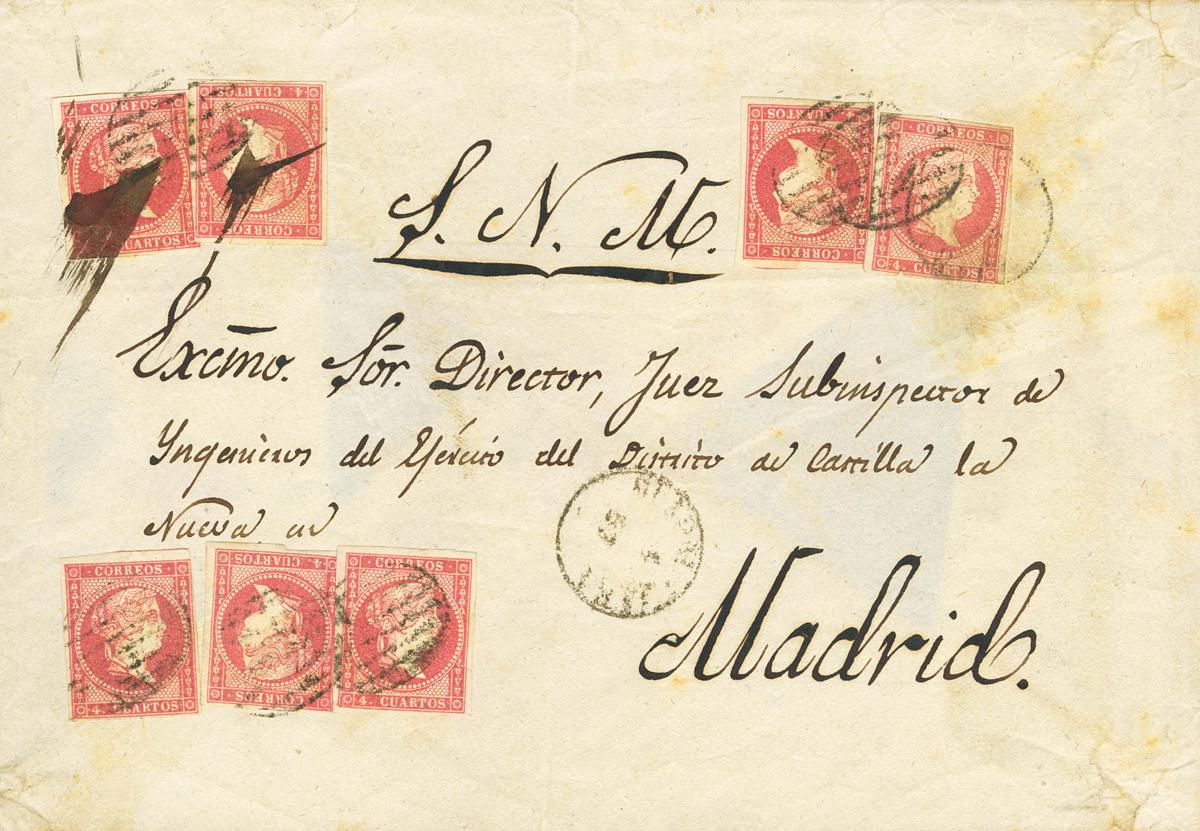 CORREOS
4. CUARTOS
CORREOS
CUARTOS
CORREOS
CUARTOS
CORREOS
4. CUARTOS
S. N. M.
Excmo. Sōr. Director, Juez Subinspector de
Yngenieros del Ejército del Distrito de Castilla la
Nueva en
CORREOS
4. CUARTOS
4. CUARTOS
CORREOS
CORREOS
4. CUARTOS
Madrid.